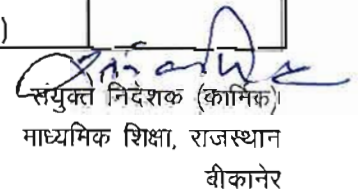 )
संयुक्त निदेशक (कार्मिक)
माध्यमिक शिक्षा, राजस्थान
बीकानेर